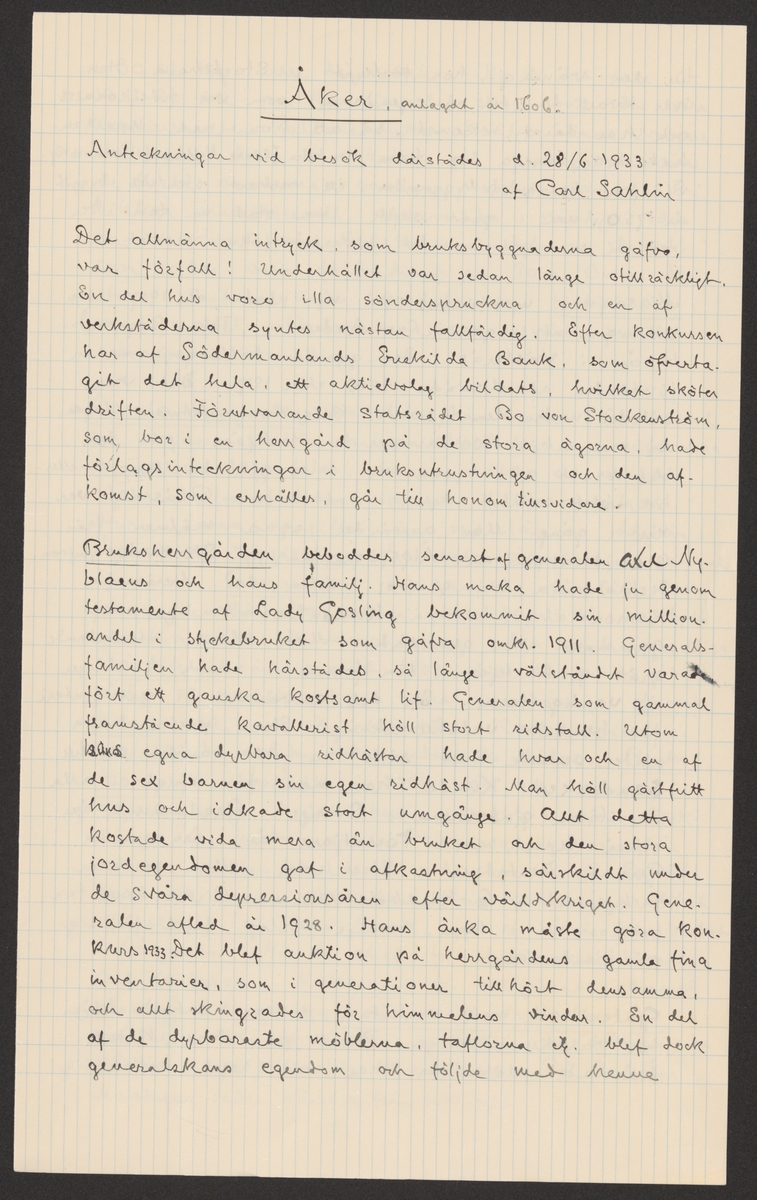 Åker, anlagdt år 1606.
Anteckningar vid besök därstädes d. 28/6 1933
af Carl Sahlin
Det allmänna intryck, som bruksbyggnaderna gåfvo,
var förfall! Underhållet var sedan länge otillräckligt.
En del hus voro illa sönderspruckna och en af
verkstäderna syntes nästan fallfärdig. Efter konkursen
har af Södermanlands Enskilda Bank, som öfverta-
git det hela, ett aktiebolag bildats, hvilket sköter
driften. Förutvarande statsrådet Bo von Stockenström,
som bor i en herrgård på de stora ägorna, hade
förlagsinteckningar i bruksutrustningen och den af-
komst, som erhålles, går till honom tillsvidare.
Bruksherrgården beboddes senast af generalen Axel Ny-
blaeus och hans familj. Hans maka hade ju genom
testamente af Lady Gosling bekommit sin million-
andel i styckebruket som gåfva omkr. 1911. Generals-
familjen hade härstädes, så länge välståndet varade
fört ett ganska kostsamt lif. Generalen som gammal
framstående kavallerist höll stort ridstall. Utom
hans egna dyrbara ridhästar hade hvar och en af
de sex barnen sin egen ridhäst. Man höll gästfritt
hus och idkade stort umgänge. Allt detta
kostade vida mera än bruket och den stora
jordegendomen gaf i afkastning, särskildt under
de svåra depressionsåren efter världskriget. Gene-
ralen afled år 1928. Hans änka måste göra kon-
kurs 1933. Det blef auktion på herrgårdens gamla fina
inventarier, som i generationer tillhört densamma,
och allt skingrades för himmelens vindar. En del
af de dyrbaraste möblerna, taflorna etc. blef dock
generalskans egendom och följde med henne